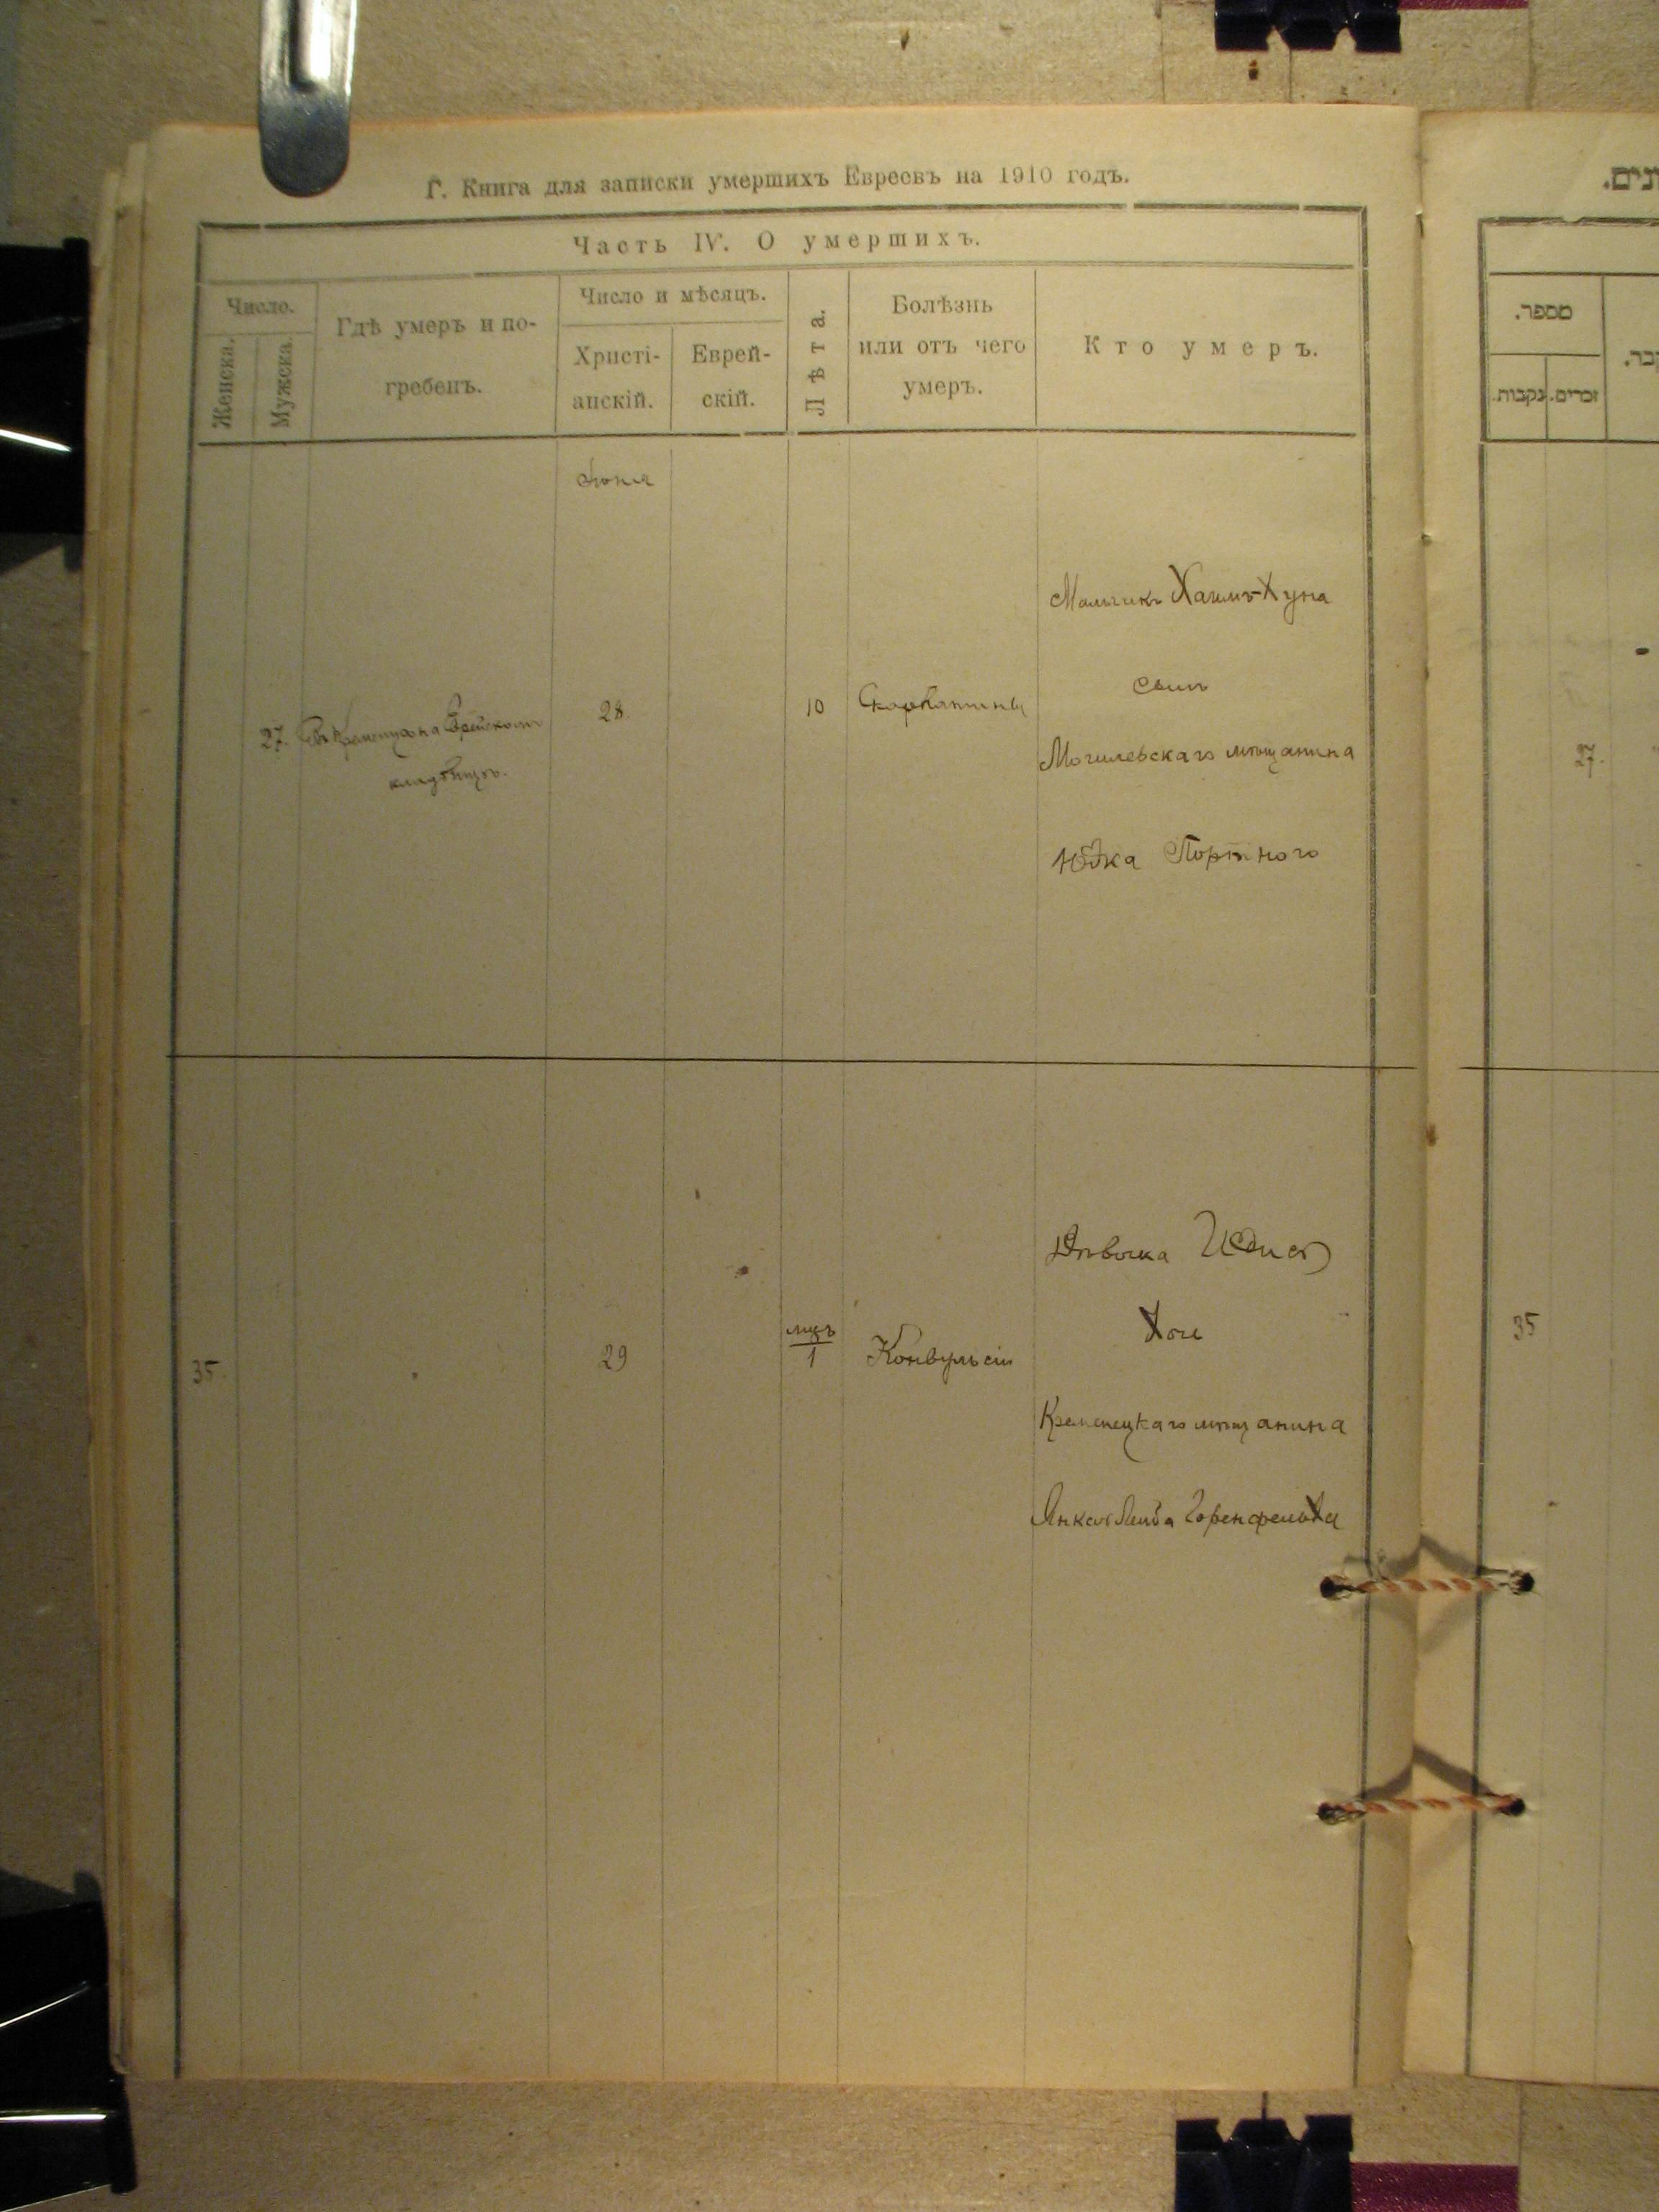 Г. Книга для записки умершихъ Евреевъ на 1910 годъ.
Часть IV. О умершихъ.
Число.
Женска.
Мужска.
Гдѣ умеръ и по-
гребенъ.
Число и мѣсяцъ.
Христі-
анскій.
Еврей-
скій.
Лѣта.
Болѣзнь
или отъ чего
умеръ.
Кто умеръ.
Іюня
27.
Въ Кременцѣ на Еврейскомъ
кладбищѣ.
28
10
Скарлатины
Мальчикъ Хаимъ-Хуна
сынъ
Могилевскаго мѣщанина
Портного
35.
29
мцъ
1
Конвульсіи
Дѣвочка
Кременецкаго мѣщанина
Янкель Лейба
מספר.
זכרים.
נקבות.
27.
35